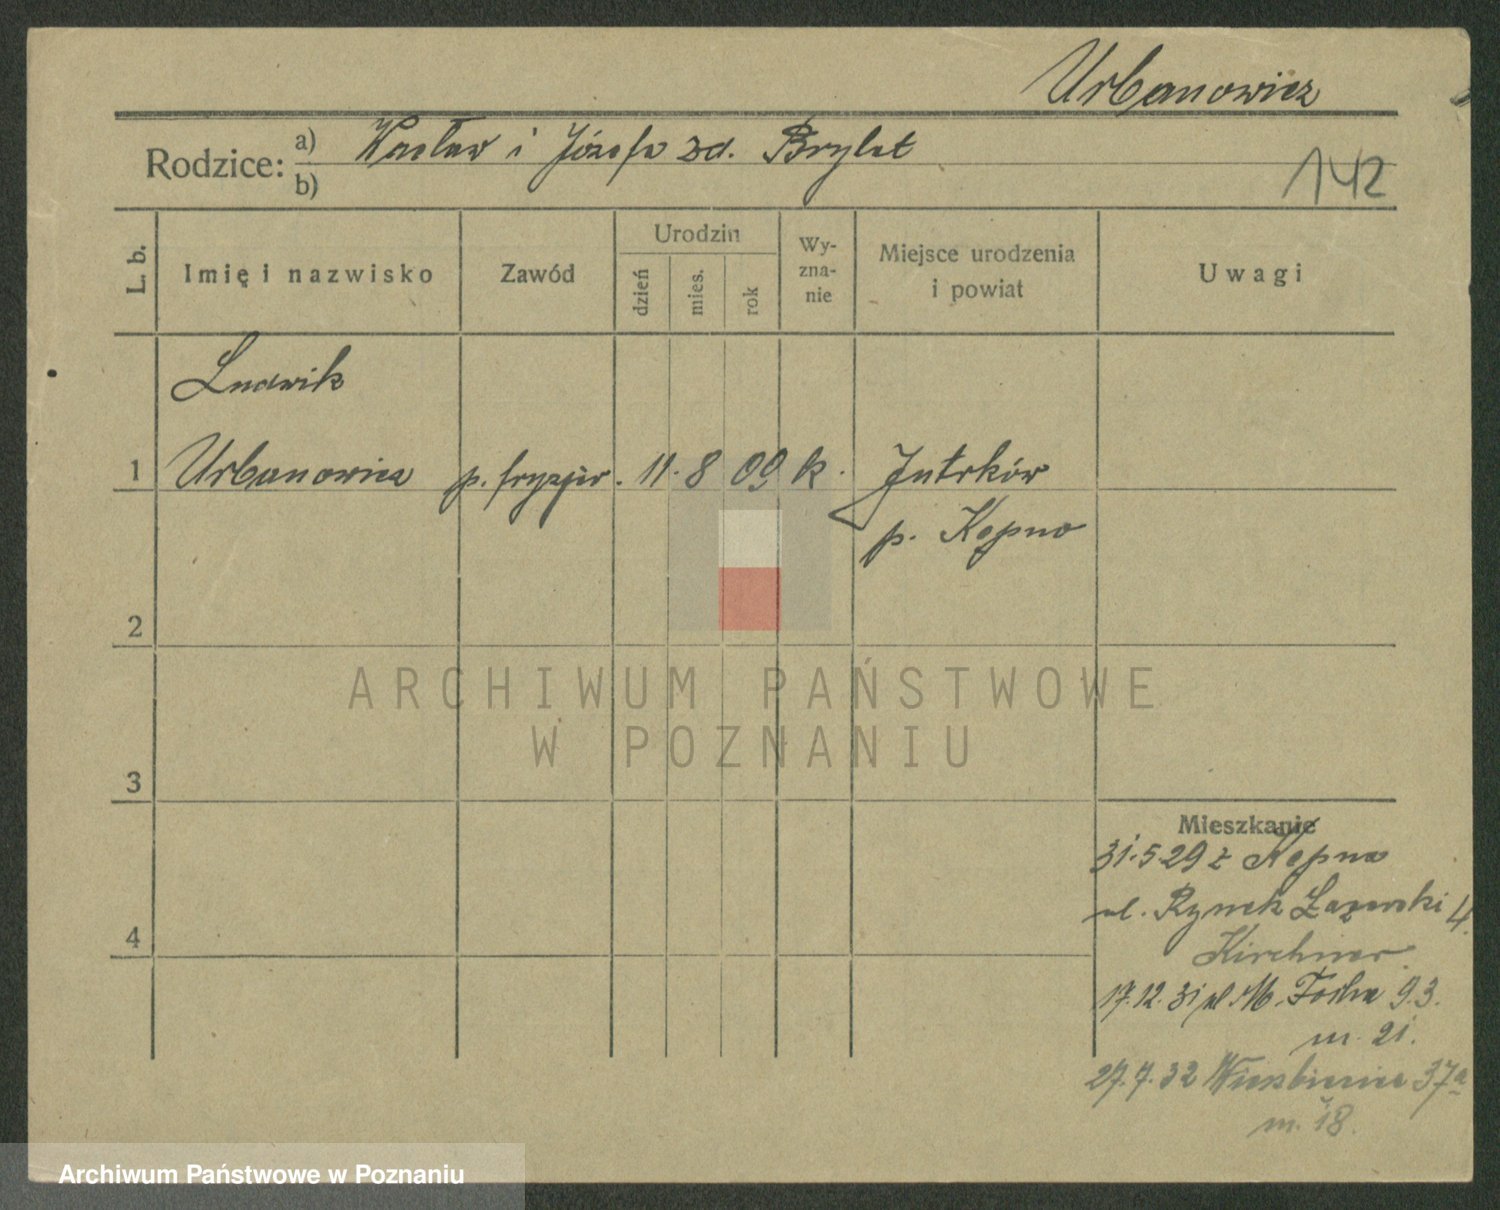 Urbanowicz
Rodzice: a) Wacław i Józefa zd. Brylet
b)
142
L. b.
Imię i nazwisko
Zawód
Urodzin
dzień
mies.
rok
Wy-
zna-
nie
Miejsce urodzenia
i powiat
Uwagi
Ludwik
1 Urbanowicz p. fryzjer. 11. 8 09 k. Jutrków
p. Kępno
2
ARCHIWUM PAŃSTWOWE
W POZNANIU
3
Mieszkanie
31.5.29 z Kępna
ul. Rynek Łazarski 4.
4
Kirchner.
17.12.31 ul M. Focha 93.
m. 21.
27.7.32 Wierzbięcice 37a
m. 18.
Archiwum Państwowe w Poznaniu